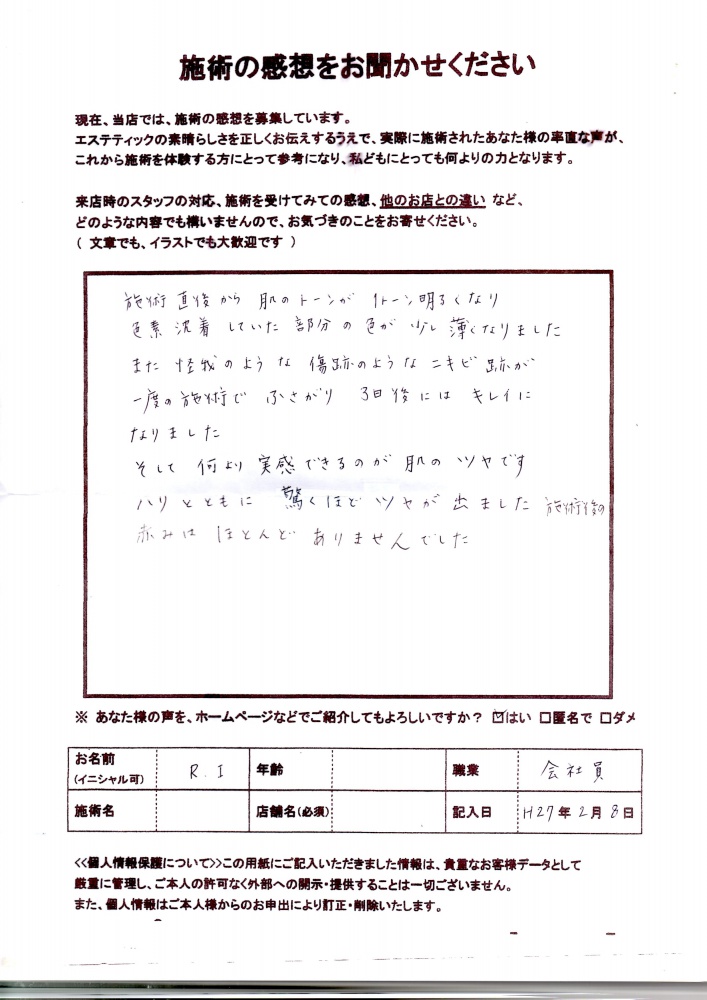 施術の感想をお聞かせください
現在、当店では、施術の感想を募集しています。
エステティックの素晴らしさを正しくお伝えするうえで、実際に施術されたあなた様の率直な声が、
これから施術を体験する方にとって参考になり、私どもにとっても何よりの力となります。
来店時のスタッフの対応、施術を受けてみての感想、他のお店との違い など、
どのような内容でも構いませんので、お気づきのことをお寄せください。
( 文章でも、イラストでも大歓迎です )
施術直後から 肌のトーンが 1トーン明るくなり
色素沈着していた部分の色が少し薄くなりました
また怪我のような傷跡のようなニキビ跡が
一度の施術でふさがり 3日後にはキレイに
なりました
そして何より実感できるのが肌のツヤです
ハリとともに 驚くほどツヤが出ました 施術後の
赤みは ほとんど ありませんでした
※ あなた様の声を、ホームページなどでご紹介してもよろしいですか? ☑はい □匿名で □ダメ
お名前 (イニシャル可) R.I 年齢 職業 会社員
施術名 店舗名(必須) 記入日 H27年2月8日
<<個人情報保護について>>この用紙にご記入いただきました情報は、貴重なお客様データとして
厳重に管理し、ご本人の許可なく外部への開示・提供することは一切ございません。
また、個人情報はご本人様からのお申出により訂正・削除いたします。